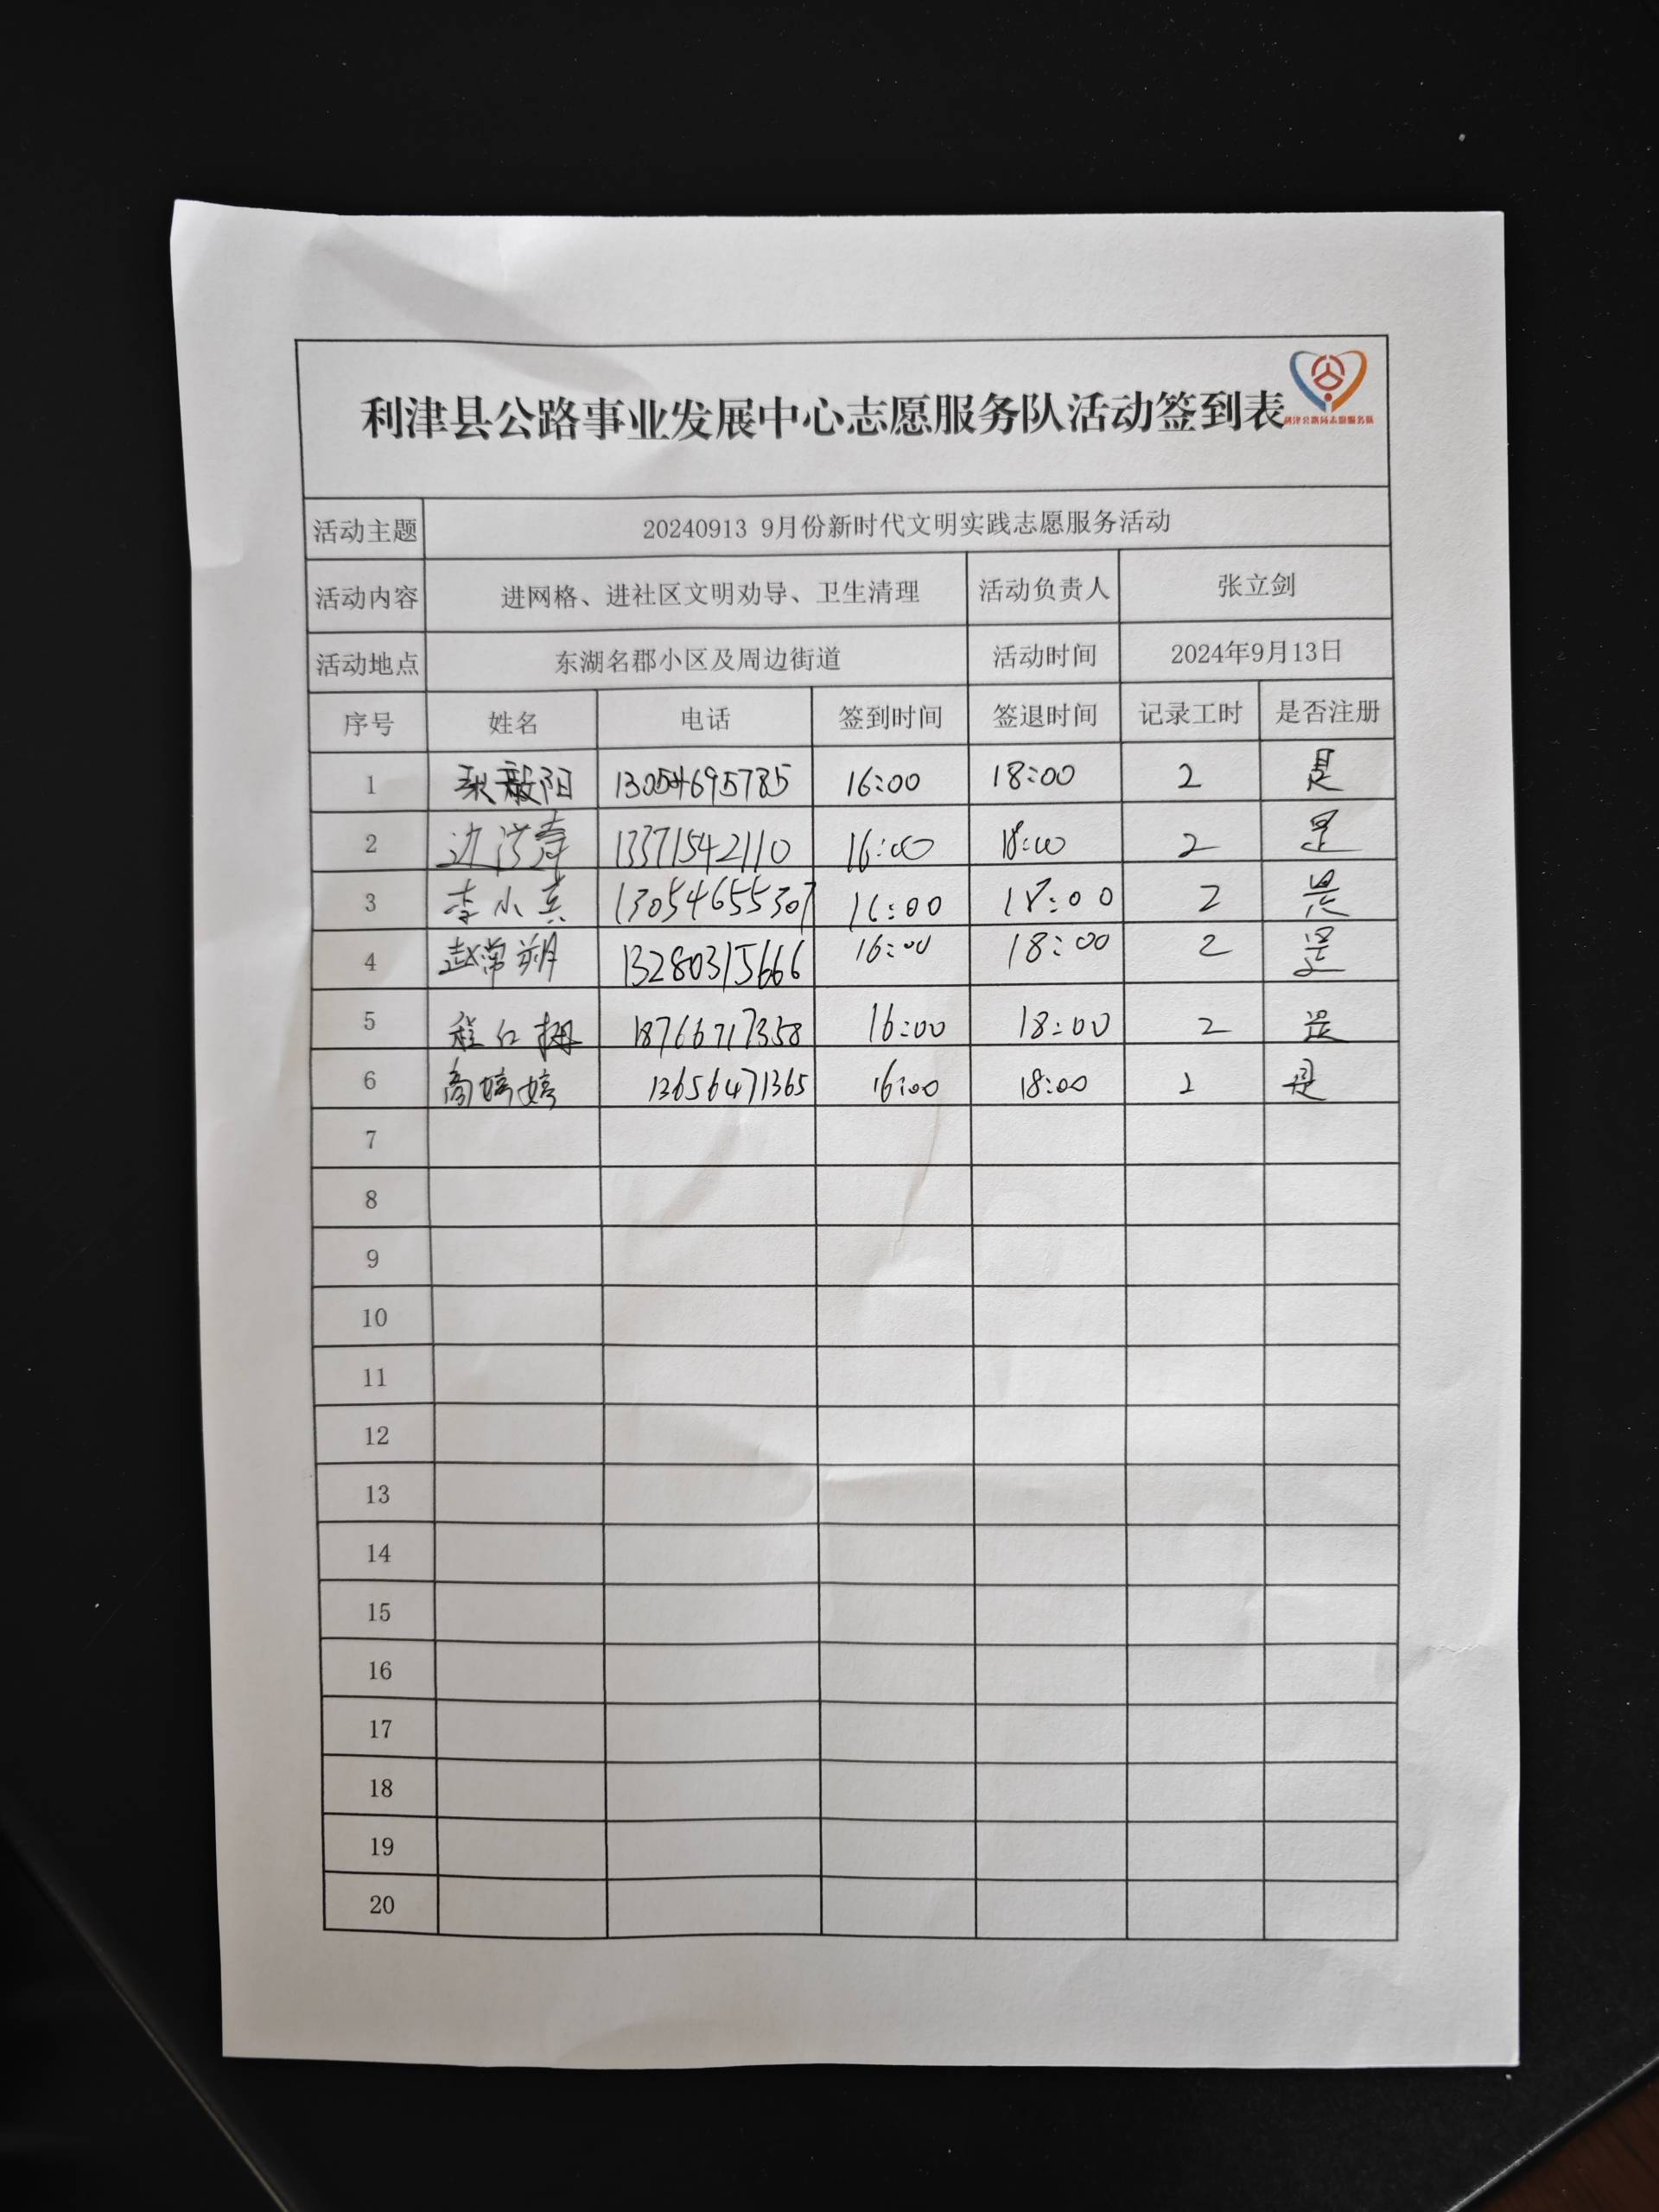 利津县公路事业发展中心志愿服务队活动签到表
利津公路局志愿服务队
活动主题 20240913 9月份新时代文明实践志愿服务活动
活动内容 进网格、进社区文明劝导、卫生清理 活动负责人 张立剑
活动地点 东湖名郡小区及周边街道 活动时间 2024年9月13日
序号 姓名 电话 签到时间 签退时间 记录工时 是否注册
1 13054695785 16:00 18:00 2 是
2 13371542110 16:00 18:00 2 是
3 李小真 13054655307 16:00 18:00 2 是
4 赵常朔 13280315666 16:00 18:00 2 是
5 18766717358 16:00 18:00 2 是
6 高婷婷 13656471365 16:00 18:00 2 是
7
8
9
10
11
12
13
14
15
16
17
18
19
20